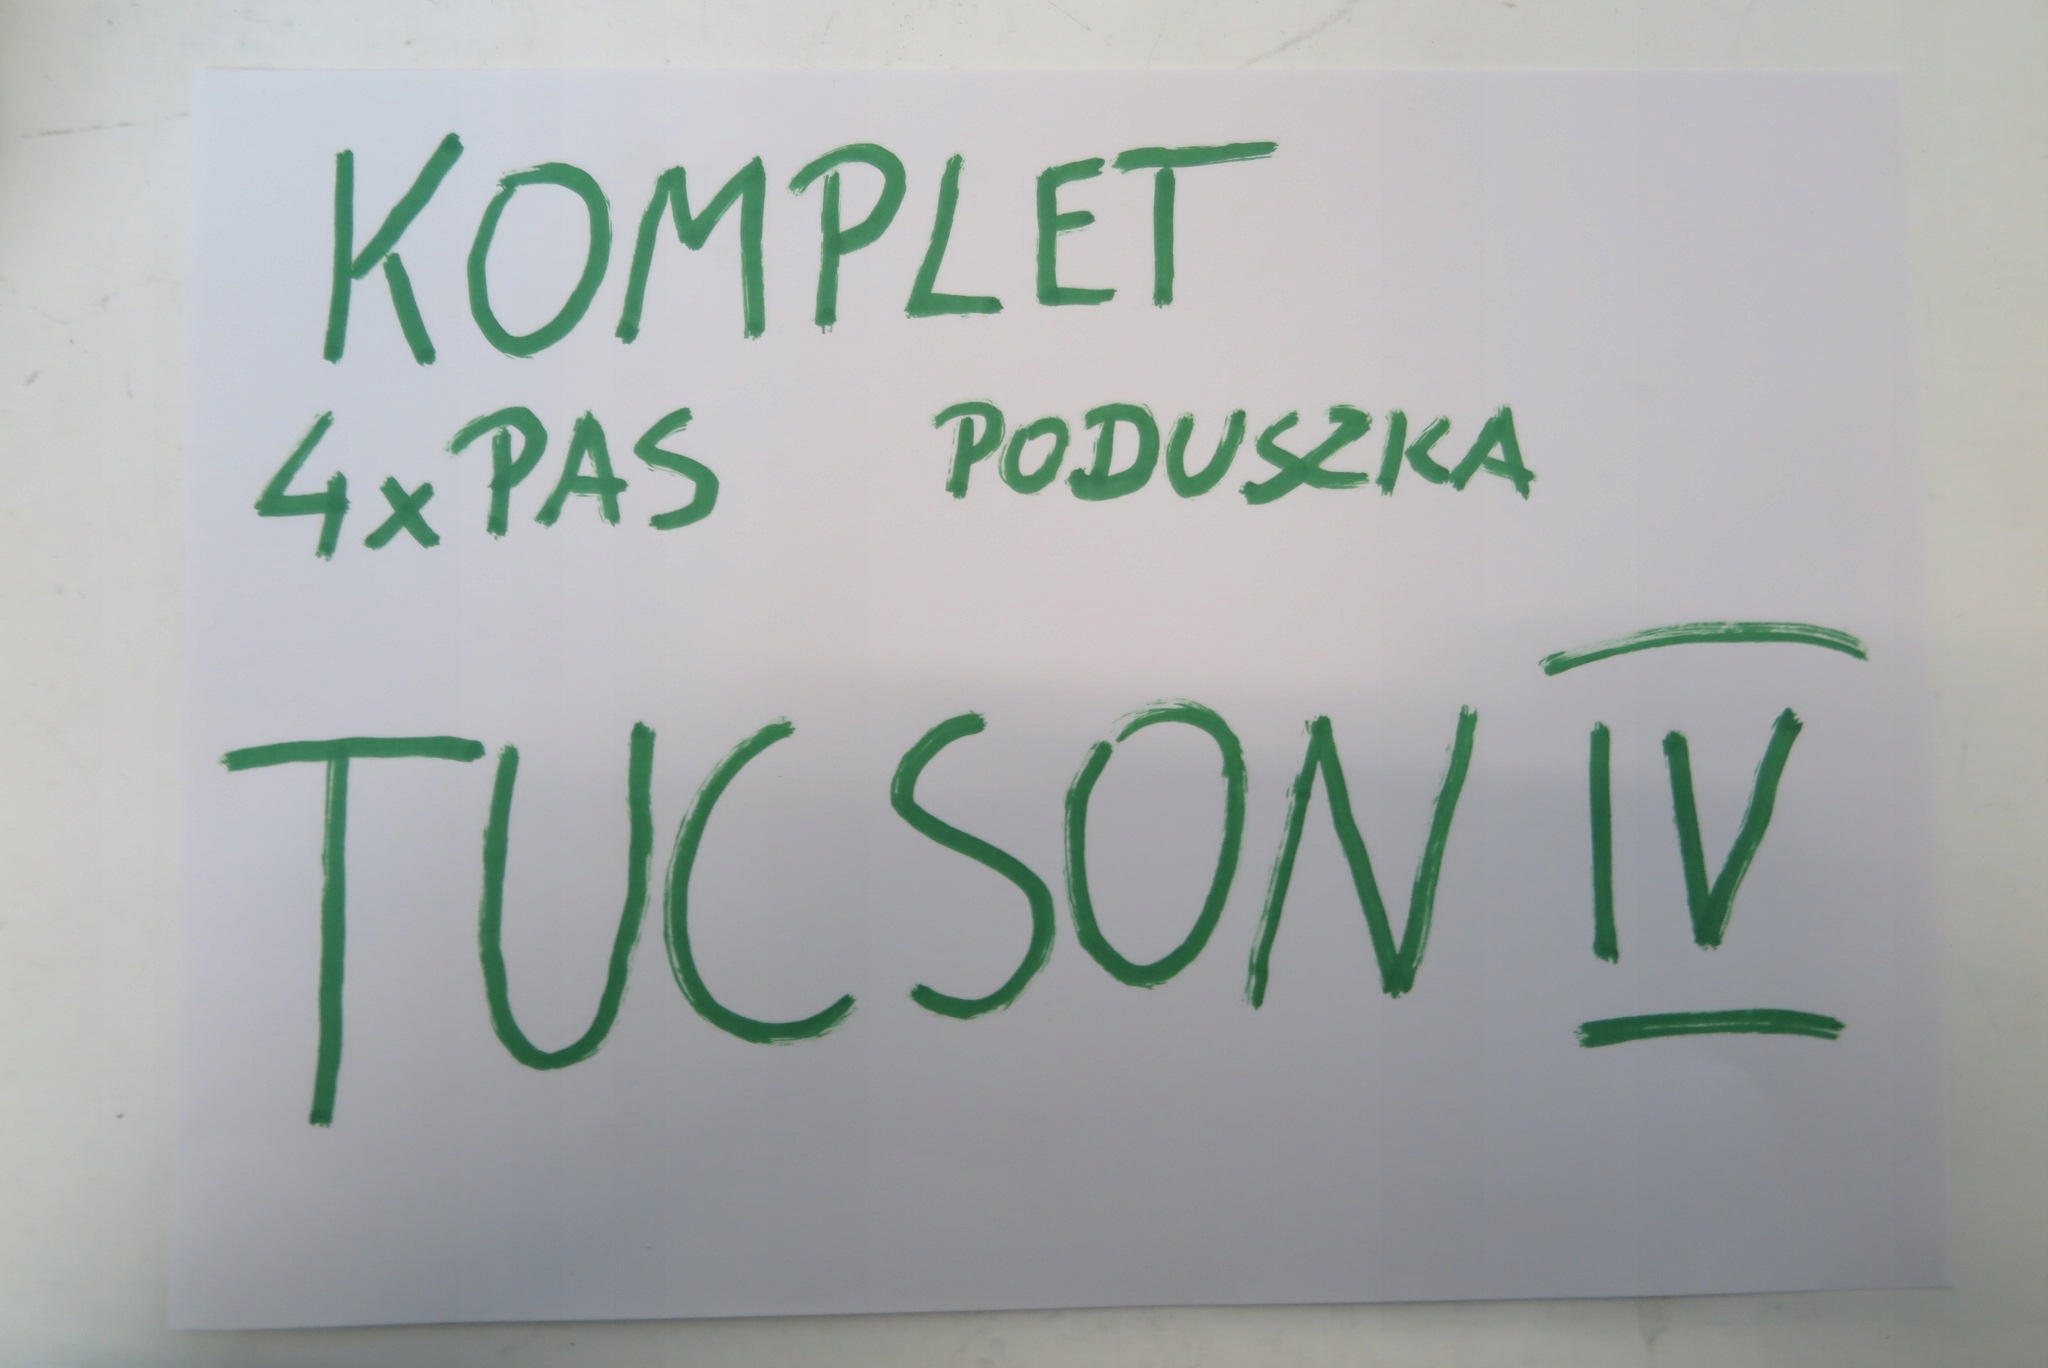 KOMPLET
4x PAS PODUSZKA
TUCSON IV